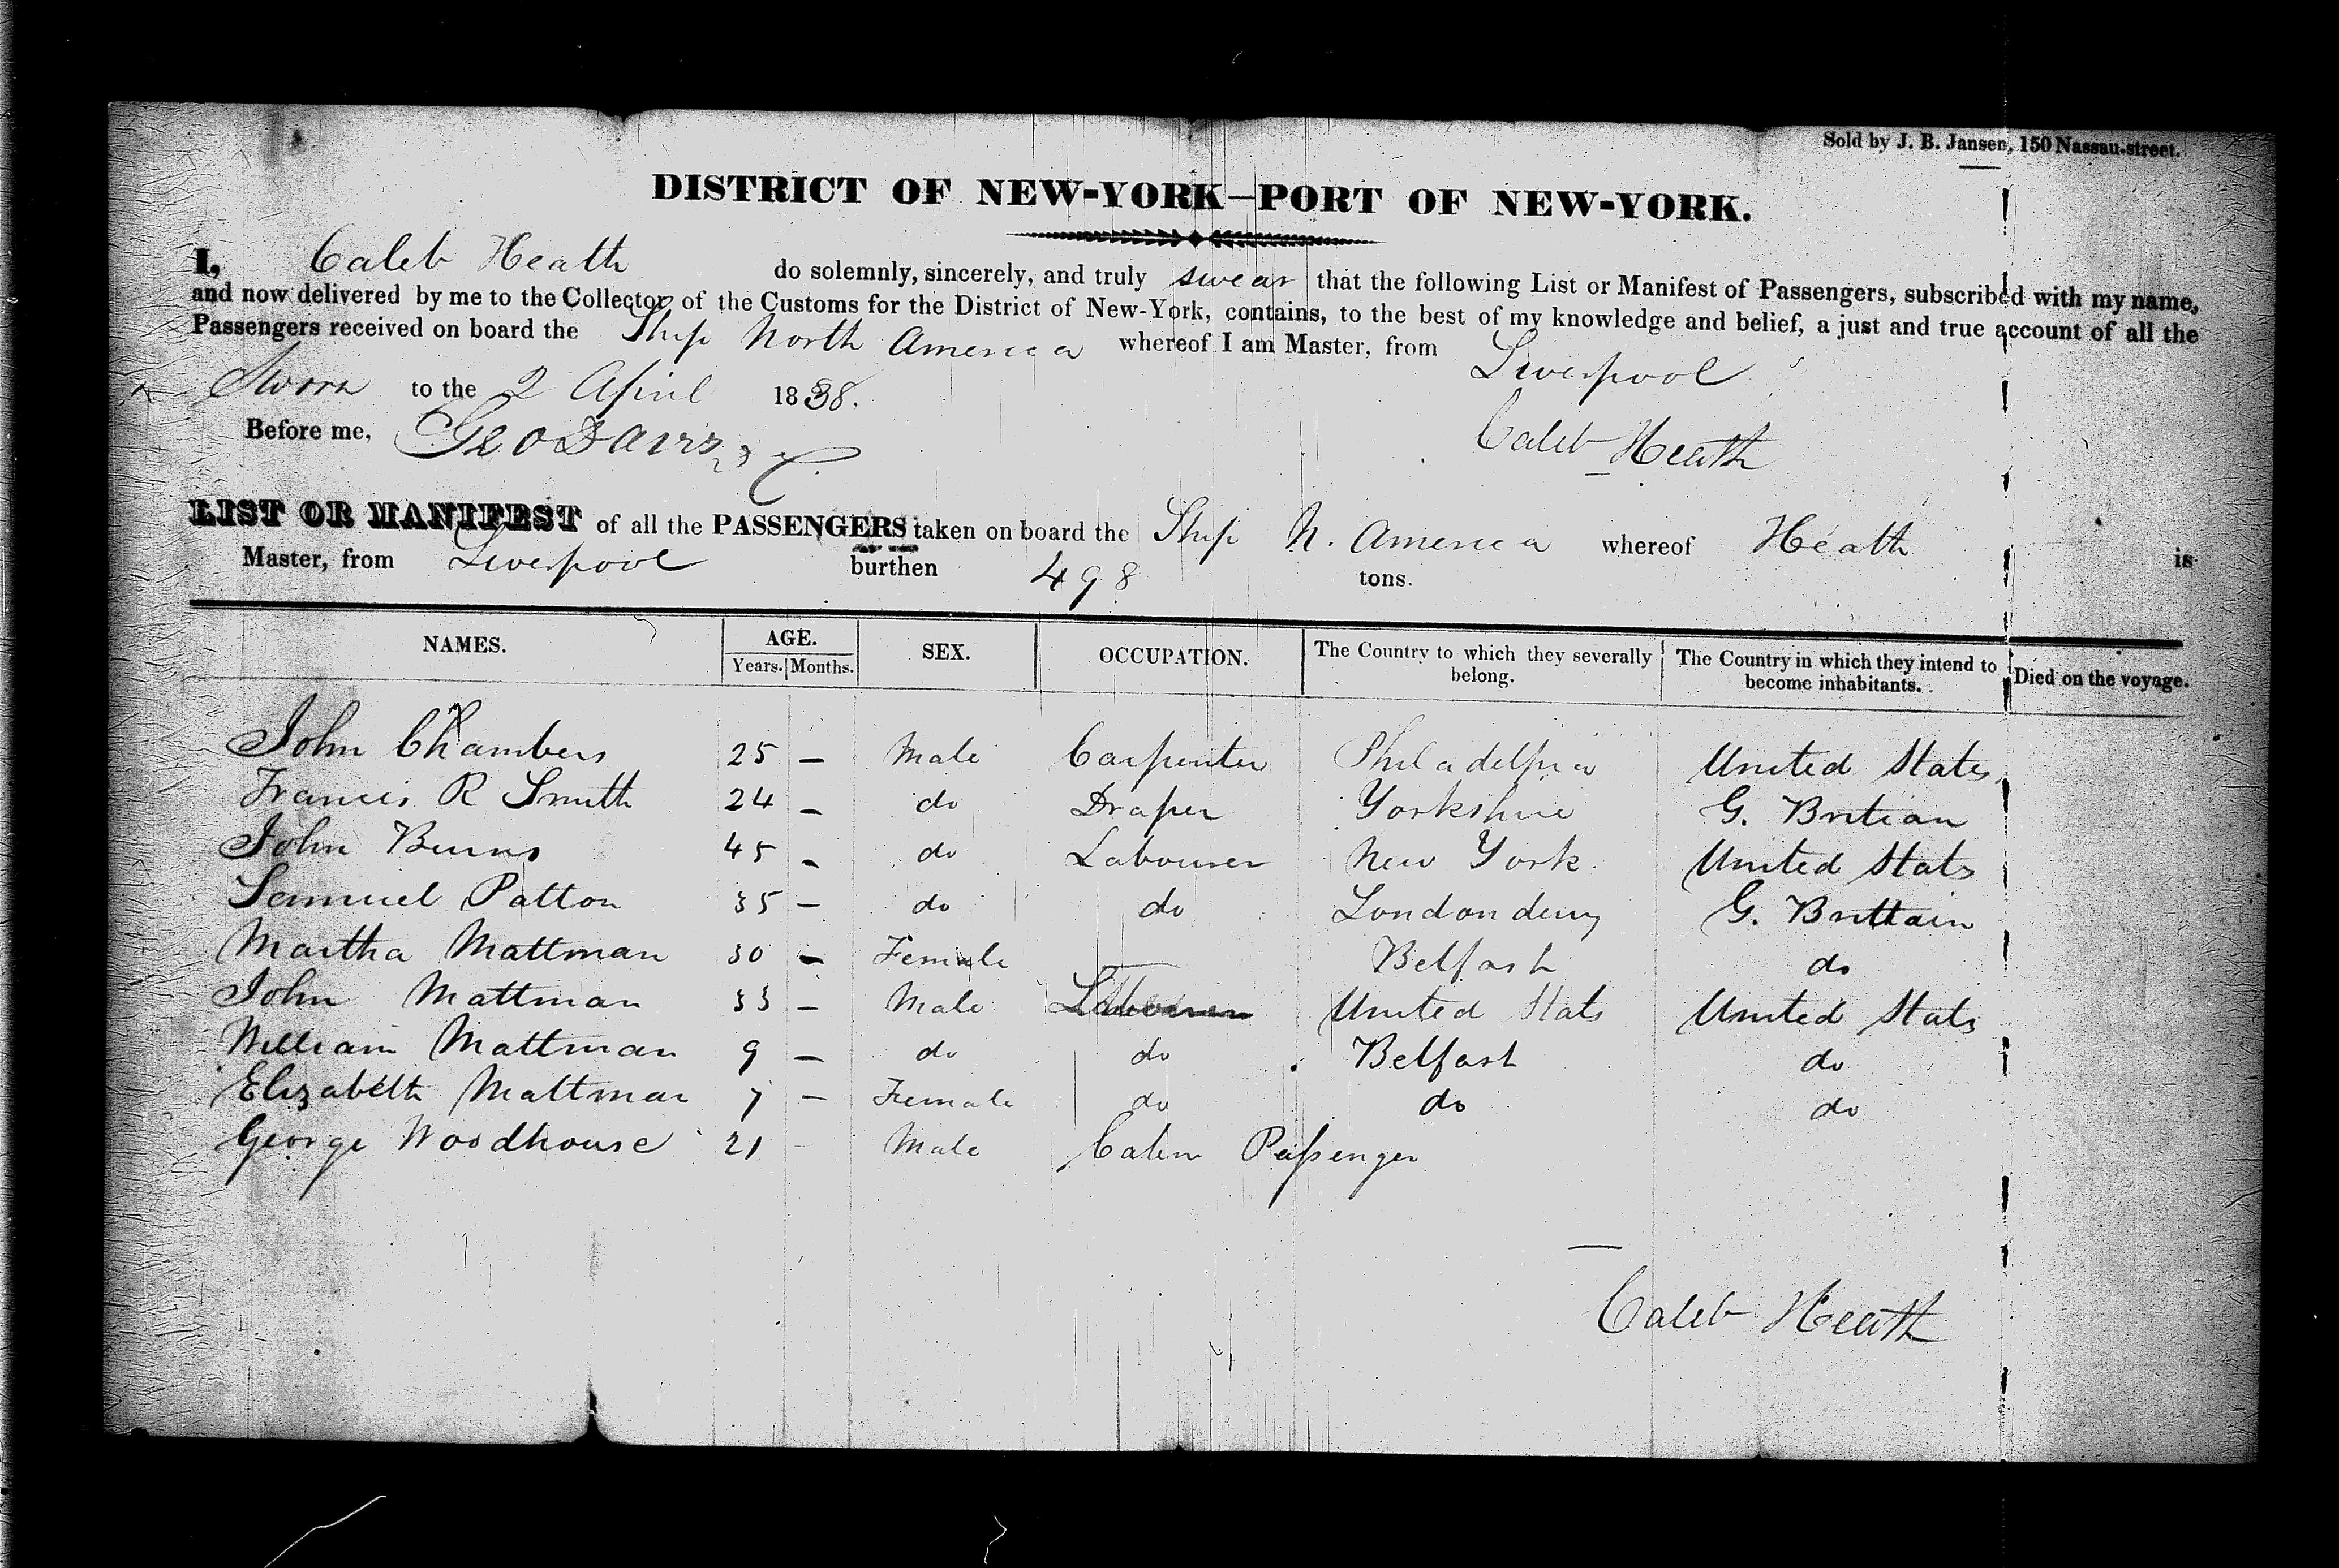 Sold by J. B. Jansen, 150 Nassau-street.
DISTRICT OF NEW-YORK—PORT OF NEW-YORK.
I, Caleb Heath do solemnly, sincerely, and truly swear that the following List or Manifest of Passengers, subscribed with my name,
and now delivered by me to the Collector of the Customs for the District of New-York, contains, to the best of my knowledge and belief, a just and true account of all the
Passengers received on board the Ship North America whereof I am Master, from Liverpool
Sworn to the 2 April 1838.
Before me, Geo Davis
Caleb Heath
LIST OR MANIFEST of all the PASSENGERS taken on board the Ship N. America whereof Heath is
Master, from Liverpool burthen 498 tons.
NAMES. AGE. Years. Months. SEX. OCCUPATION. The Country to which they severally belong. The Country in which they intend to become inhabitants. Died on the voyage.
John Chambers 25 — Male Carpenter Philadelphia United States
Francis R Smith 24 — do Draper Yorkshire G. Britian
John Burns 45 — do Labourer New York. United Stats
Samuel Patton 35 — do do Londonderry G. Brittain
Martha Mattman 30 — Female — Belfast do
John Mattman 33 — Male Labourer United Stats United Stats
William Mattman 9 — do do Belfast do
Elizabeth Mattman 7 — Female do do do
George Woodhouse 21 — Male Cabin Passenger
Caleb Heath